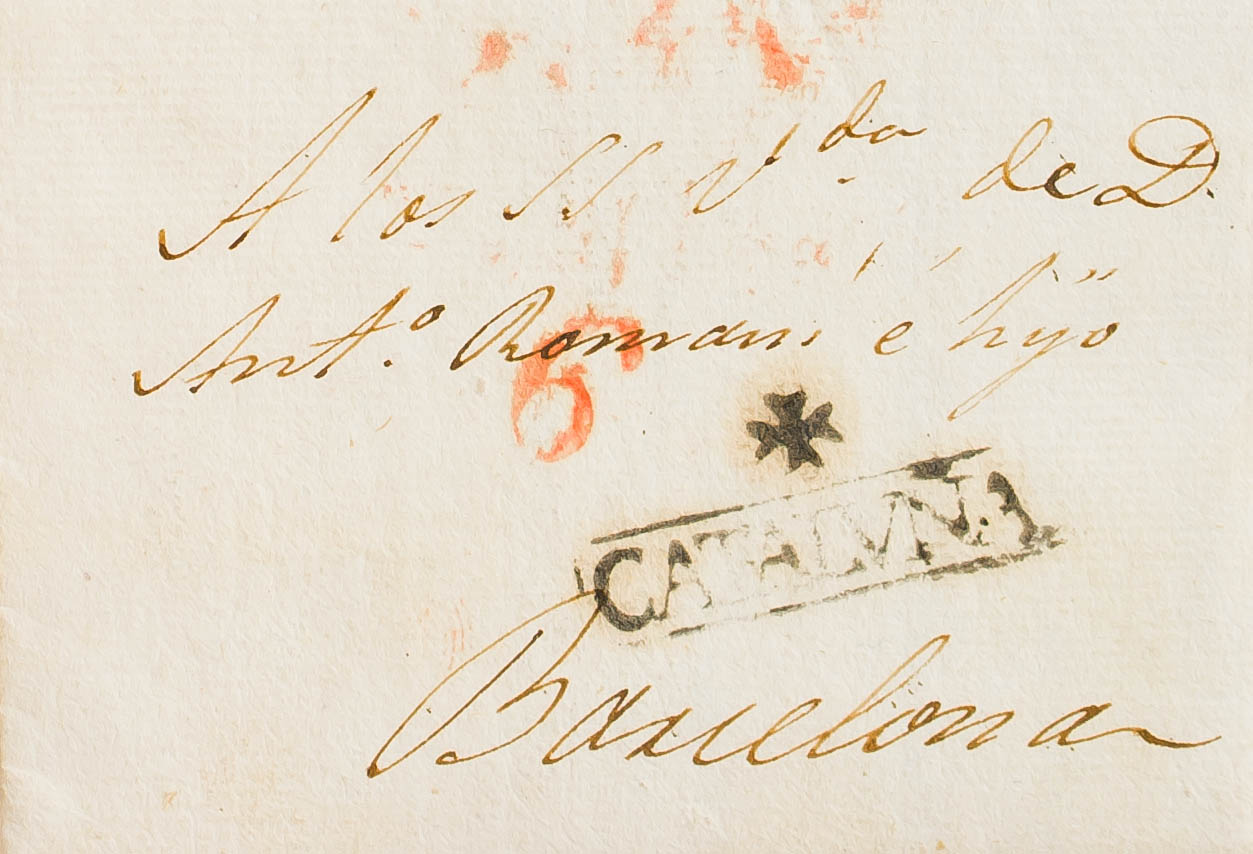 A los SS V.da de D.
Ant.o Romani é hijo
6
CATALUÑA
Barcelona